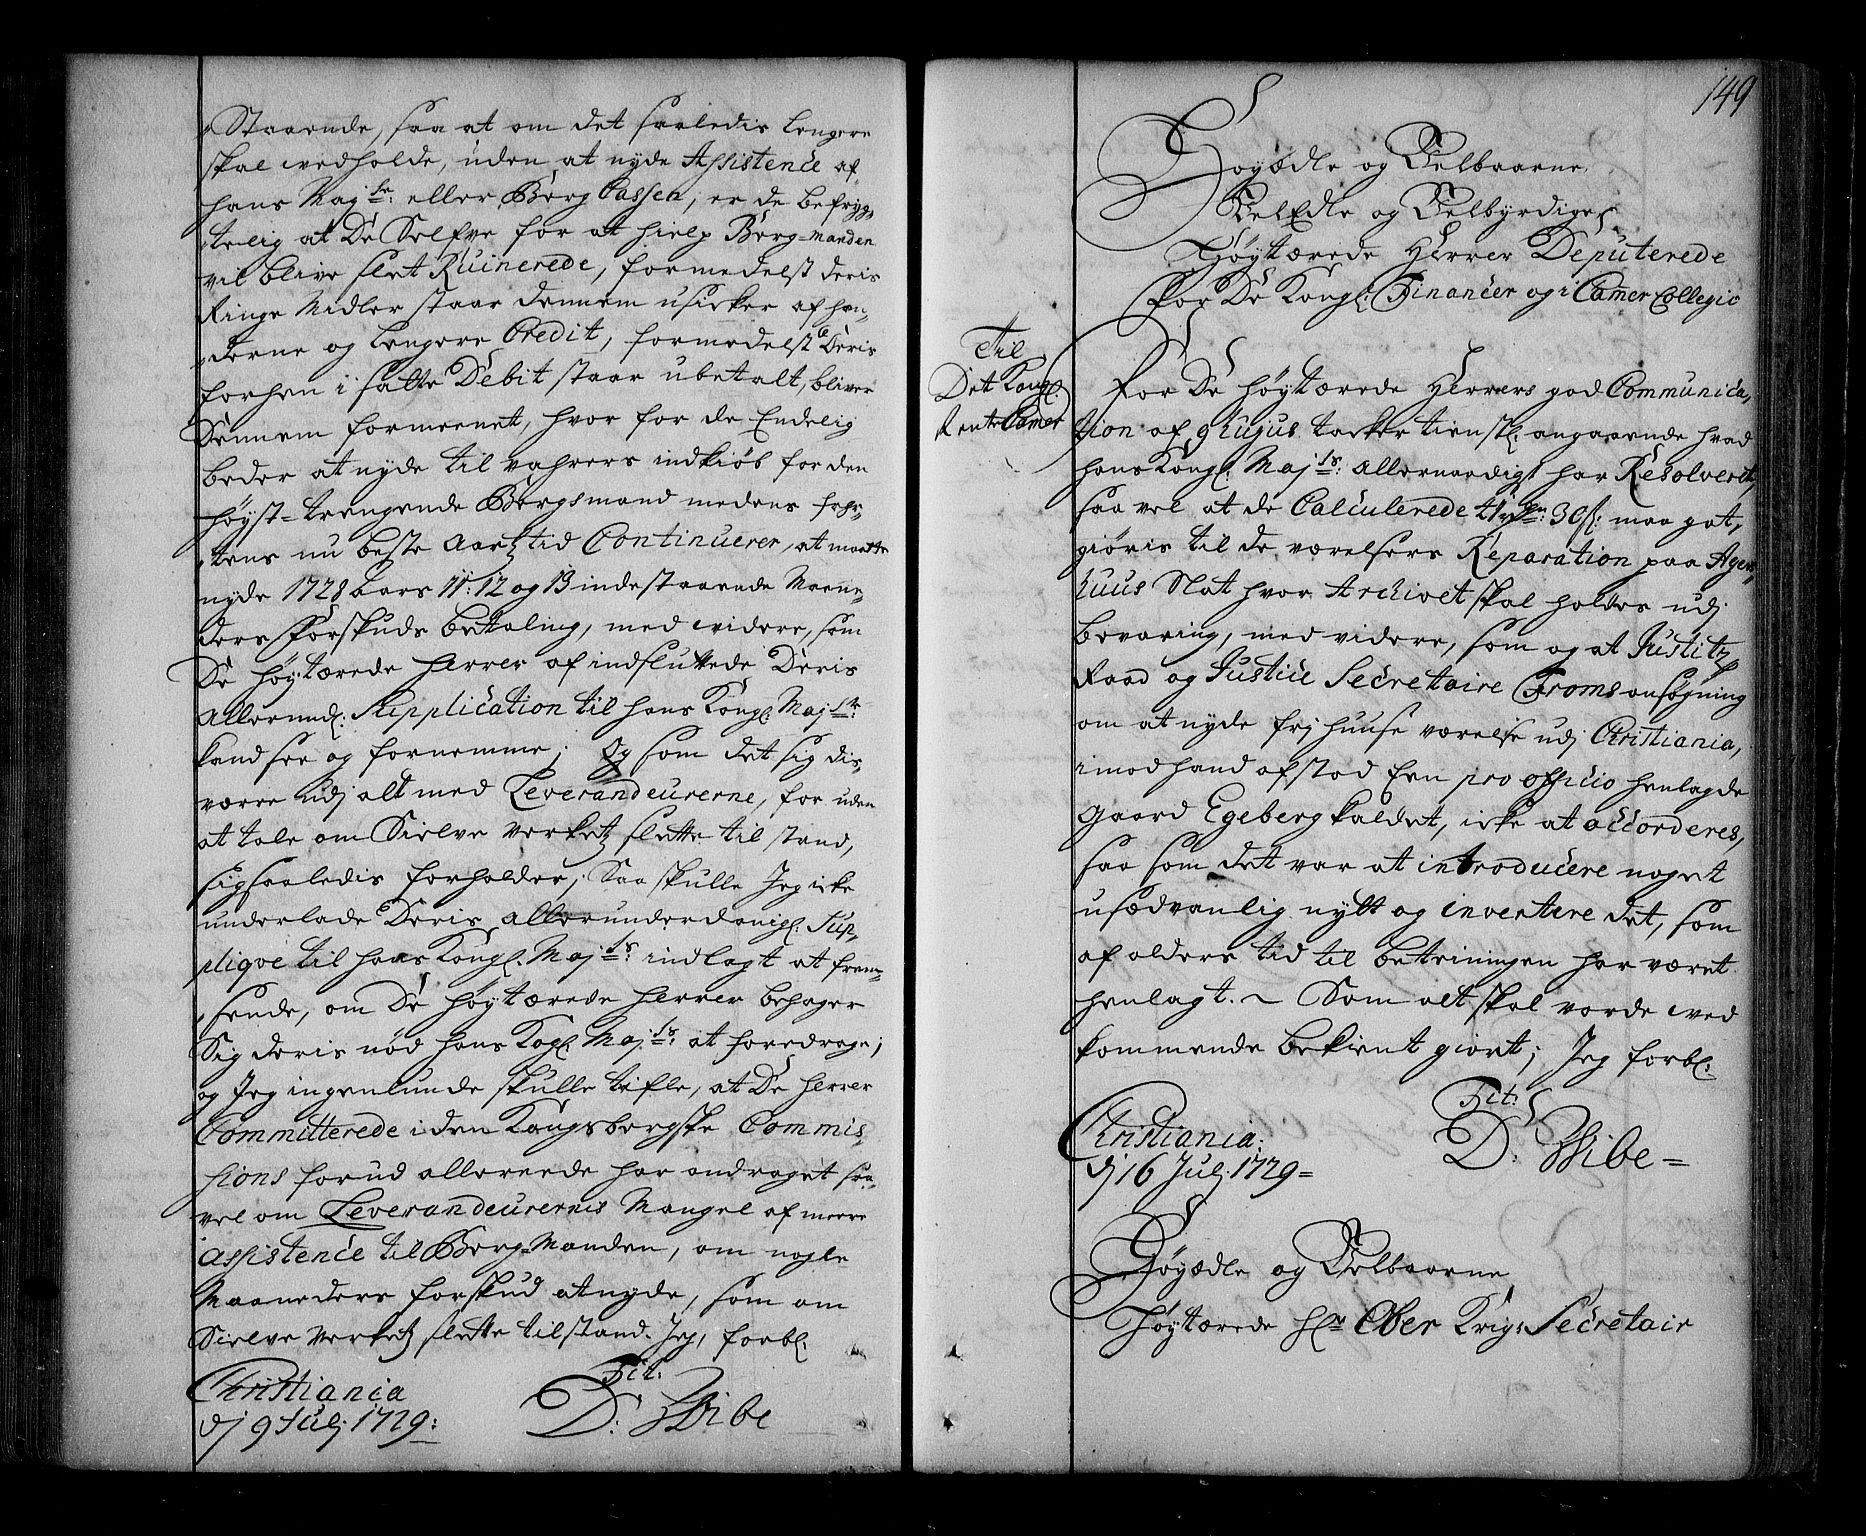 Staaende, saa at om det saaledis lengere
skal wedholde, uden at nyde Assistence af
hans Maj.ts eller Berg Cassen, er de befryg-
telig at De Selfve for at hielp Berg-manden
vil blive slet Ruinerede, formedelst deris
Ringe Midler staar dennem usicker af hen-
derne og lengere Credit, formedelst Deris
forhen i satte Debit staar ubetalt, bliver
Dennem formeenet, hvor for de Endelig
beder at nyde til vahrers indkiøb for den
høyst-trengende Bergsmand medens
nu beste Aartz tid Continuerer, at maatte
nyde 1728 Aars 11: 12 og 13 indestaaende Maane-
ders Forskuds betaling, med widere, som
De høytærede Herrer af indsluttede Deris
Allerund. Supplication til hans Kongl. Maj.t
kand see og fornemme; Og som det sig dis-
værre udj alt med Leverandeurerne, for uden
at tale om Sielve Verketz slette til stand,
sig saaledis forholder; Saa skulle Jeg icke
underlade Deris allerunderdanigl: Sup-
plique til hans Kongl. Maj.ts indlagt at frem-
sende, om De høytærede Herrer behager
Sig deris nød hans Kogl. Maj.ts at foredrage;
og Jeg ingenlunde skulle tvifle, at De Herrer
Committerede i den Kongsbergske Commis-
sions forud allereede har andraget saa-
vel om Leverandeurernis Mangel af meere
assistence til Berg-Manden, om nogle
Maaneders forskud at nyde, som om
Sielve Verketz slette tilstand. Jeg forbl.
Tit:
Christiania
dj 9 Julj 1729:
D: Wibe
149
Høyædle og Velbaarne
VelEdle og Velbyrdige
Høytærede Herrer Deputerede
for De Kongl: Financer og i Camer Collegio
Til
Det Kongl.
Rente Camer
For De høytærede Herrers god Communica-
tion af 9 hujus tacker tienstl. angaaende hvad
hans Kongl. Maj.ts allernaadigst har Resolveret,
saa vel at de Calculerede 30 s: maa got-
giøris til de værelsers Reparation paa Agers-
huus Slot hvor Archivet skal holdes udj
bevaring, med videre, som og at Justitz
Raad og Justice Secretaire Froms ansøgning
om at nyde frj huuse værelse udj Christiania,
imod hand afstod Een pro officio henlagde
gaard Egeberg kaldet, icke at accorderes,
saa som det var at introducere noget
usædvanlig nytt og invertere det, som
af alders tid til betieningen har været
henlagt. ~ Som alt skal vorde wed
kommende bekient giort; Jeg forbl:
Tit:
Christiania:
dj 16 Julj 1729=
D: Wibe=
Høyædle og Velbaarne
Høytærede Hr Ober Krigs Secretair